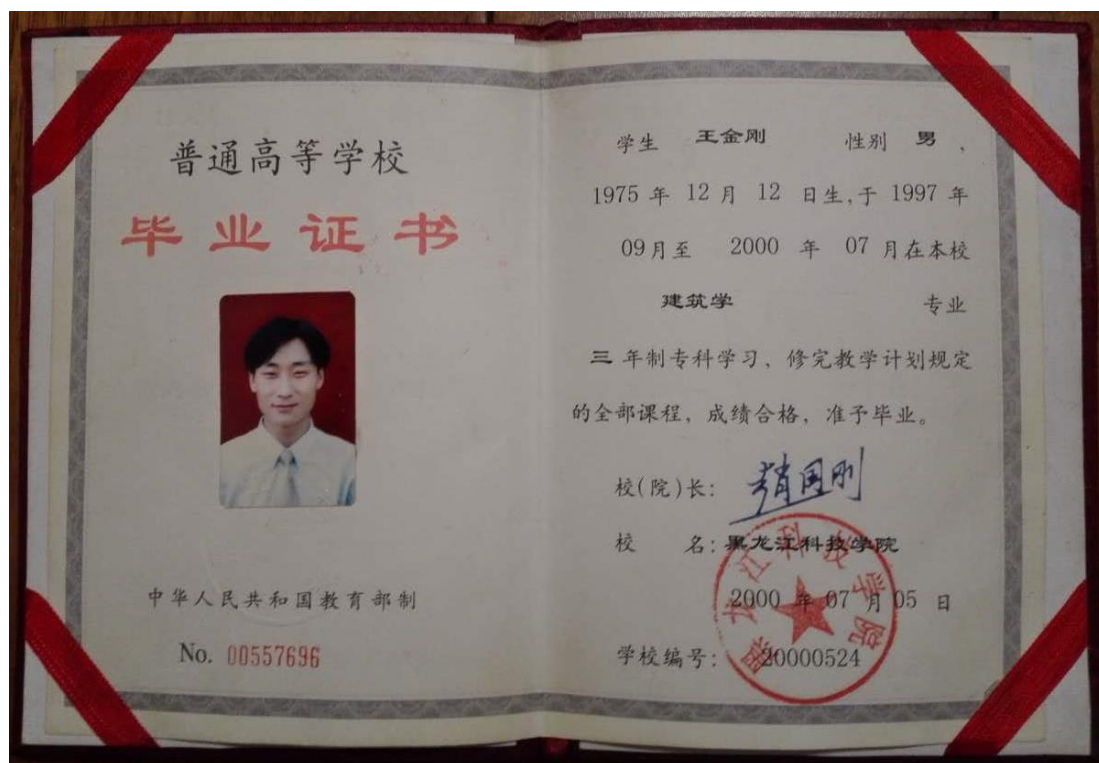 普通高等学校
毕业证书
中华人民共和国教育部制
No. 00557696
学生 王金刚 性别 男 ,
1975 年 12 月 12 日生,于 1997 年
09月至 2000 年 07 月在本校
建筑学 专业
三 年制专科学习, 修完教学计划规定
的全部课程, 成绩合格, 准予毕业。
校(院)长: 赵国刚
校 名: 黑龙江科技学院
黑龙江科技学院
2000 年 07 月 05 日
学校编号: 20000524